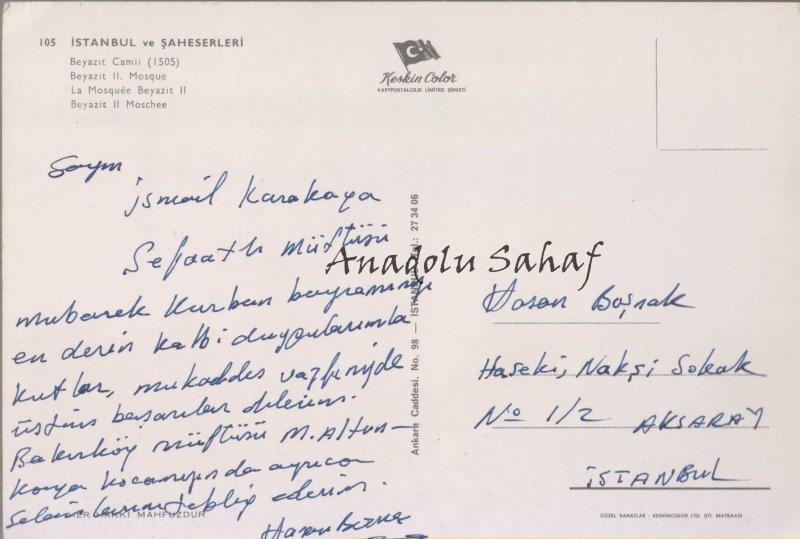 105 İSTANBUL ve ŞAHESERLERİ
Beyazıt Camii (1505)
Beyazit II. Mosque
La Mosquée Beyazit II
Beyazit II Moschee
Keskin Color
KARTPOSTALCILIK LİMİTED ŞİRKETİ
Sayın
İsmail Karakaya
Sefaatli Müftüsü
mübarek Kurban bayramınızı
en derin kalbi duygularımla
kutlar, mukaddes vazifenizde
üstün başarılar dilerim.
Bakırköy müftüsü M. Altun-
kaya hocamızında ayrıca
selamlarını tebliğ ederim.
Hasan
HER HAKKI MAHFUZDUR
Ankara Caddesi. No. 98 — İSTANBUL Tel.: 27 34 06
Anadolu Sahaf
Hasan Boşnak
Haseki, Nakşi Sokak
No 1/2 AKSARAY
İSTANBUL
GÜZEL SANATLAR - KESKİNCOLOR LTD. ŞTİ. MATBAASI